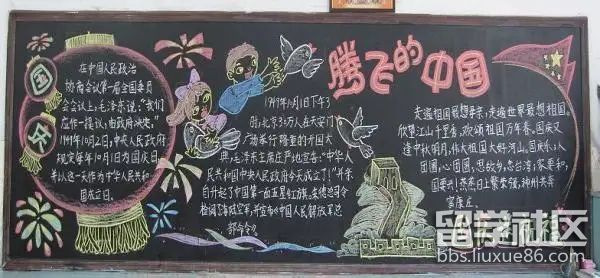 国庆
在中国人民政治
协商会议第一届全国委员
会会议上,毛泽东说:"我们
应作一提议,由政府决定。"
1949年10月2日,中央人民政府
规定每年10月1日为国庆日,
并以这一天作为中华人民共和
国成立日。
腾飞的中国
1949年10月1日下午3
时,北京30万人在天安门
广场举行隆重的开国大
典,毛泽东主席庄严地宣告:"中华人
民共和国中央人民政府今天成立了!"并亲
自升起了中国第一面五星红旗。朱德总司令
检阅了海陆空军,并宣布《中国人民解放军总
部命令》。
走遍祖国最想亲亲,走遍世界最想祖国。
欣望江山千里秀,欢颂祖国万年春。国庆又
逢中秋明月,伟大祖国大好河山。国庆外:人
团圆,心团圆,思故乡,念台湾,家要和,
国要兴!蒸蒸日上繁荣强,神州共奔
富康庄。
留学社区
bbs.liuxue86.com